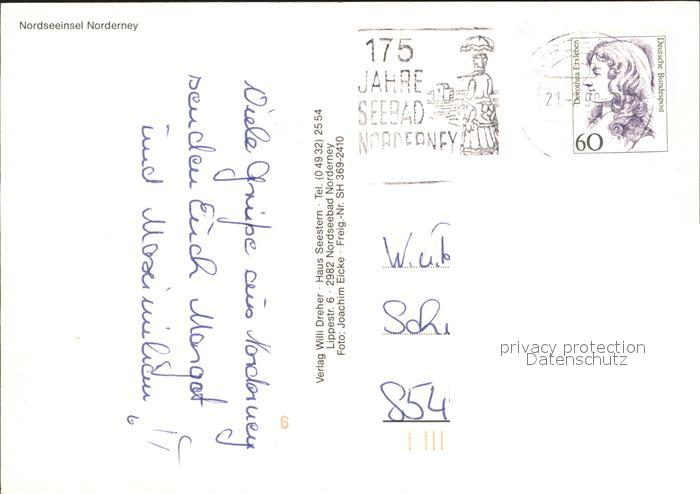 Nordseeinsel Norderney
Viele Grüße aus Norderney
senden Euch Margot
und Maximilian
Verlag Willi Dreher · Haus Seestern · Tel. (0 49 32) 25 54
Lippestr. 6 · 2982 Nordseebad Norderney
Foto: Joachim Eicke · Freig.-Nr. SH 369-2410
175
JAHRE
SEEBAD
NORDERNEY
21.
Dorothea Erxleben
Deutsche Bundespost
60
W. u.
Sch
854
privacy protection
Datenschutz
6